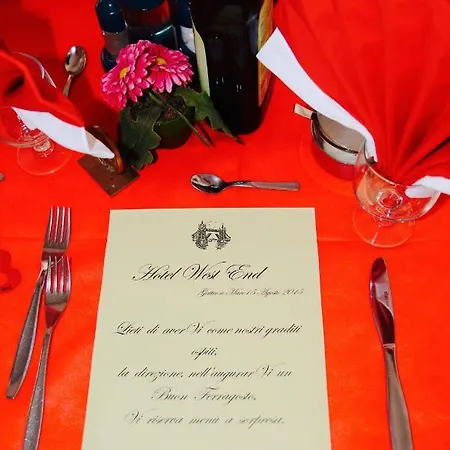 Hotel West End
Grottam Mare 15 Agosto 2015
Lieti di averVi come nostri graditi
ospiti,
la direzione, nell'augurarVi un
Buon Ferragosto,
Vi riserva menù a sorpresa.